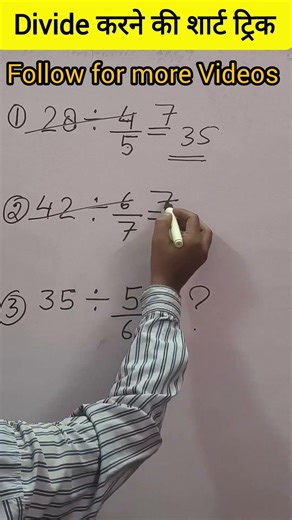 Divide करने की शार्ट ट्रिक
Follow for more Videos
① 28 ÷ 4/5 = 7 35
② 42 ÷ 6/7 = 7
③ 35 ÷ 5/6 ?